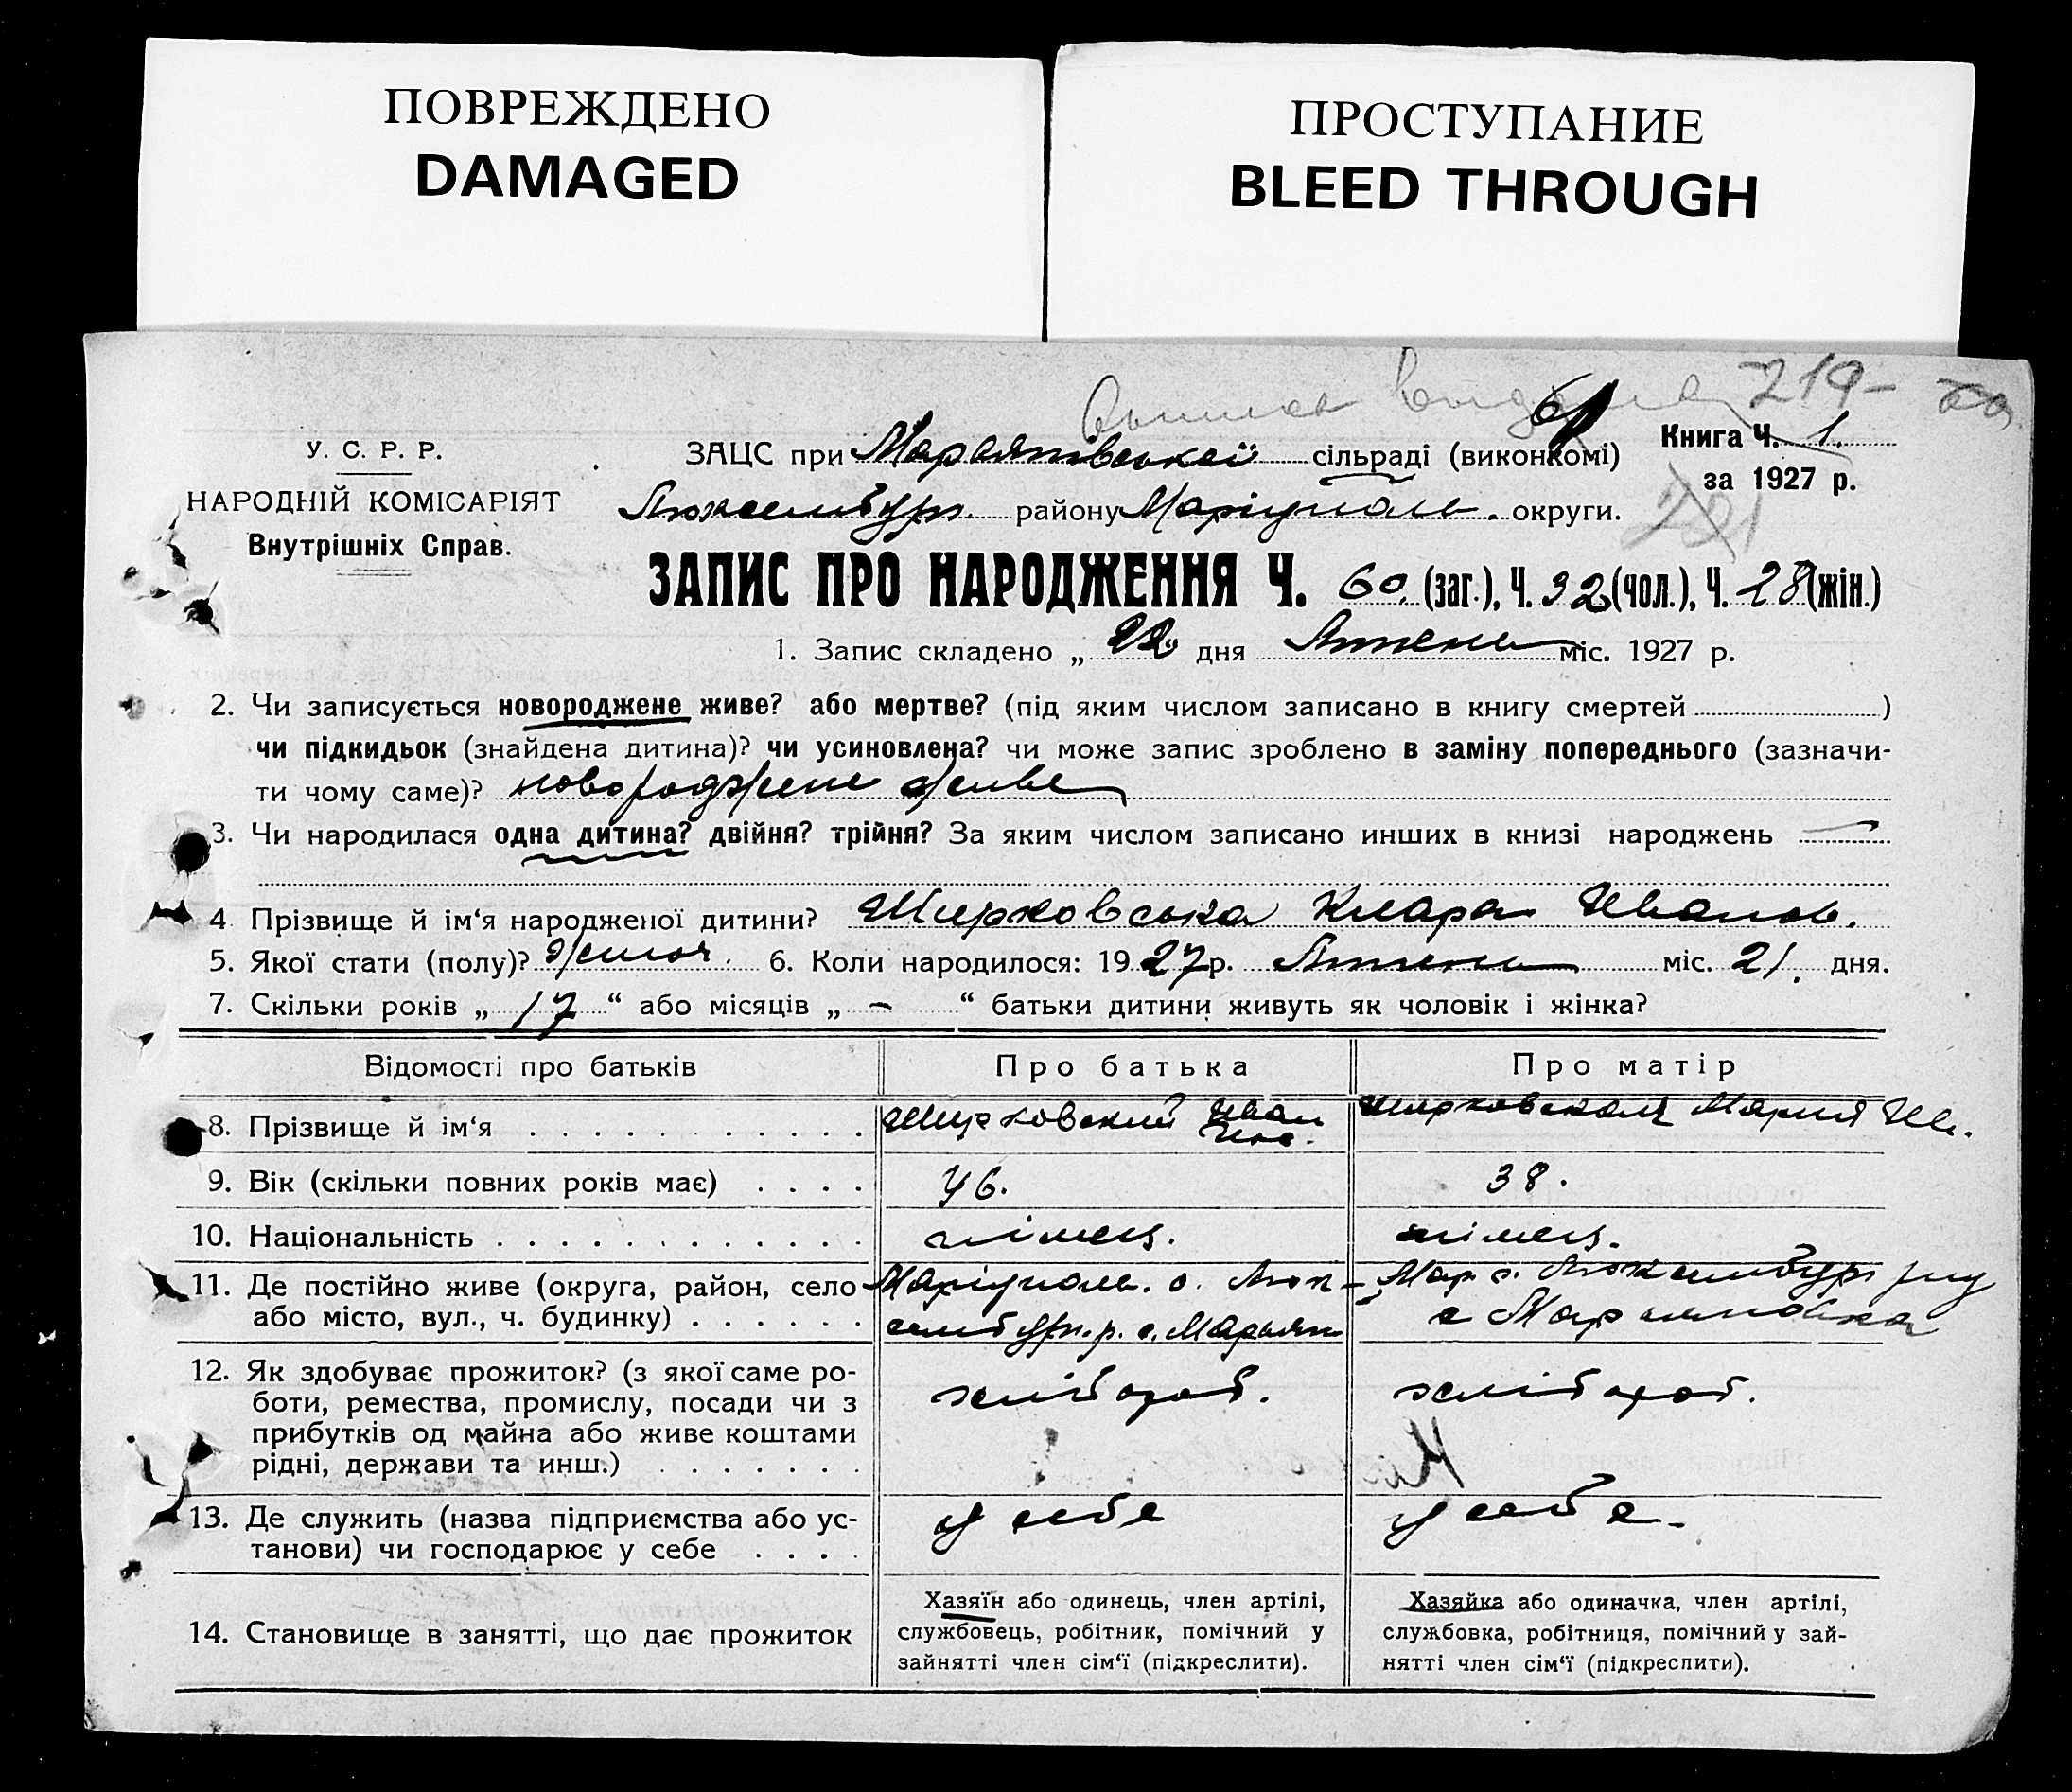 ПОВРЕЖДЕНО
DAMAGED
ПРОСТУПАНИЕ
BLEED THROUGH
219-
У. С. Р. Р.
НАРОДНІЙ КОМІСАРІЯТ
Внутрішніх Справ.
ЗАЦС при Мар'янівської сільраді (виконкомі)
Книга Ч. 1.
за 1927 р.
Люксембург. району Маріуполь. округи.
ЗАПИС ПРО НАРОДЖЕННЯ Ч. 60 (заг.), Ч. 32 (чол.), Ч. 28 (жін.)
1. Запис складено „ 22 дня Липень міс. 1927 р.
2. Чи записується новороджене живе? або мертве? (під яким числом записано в книгу смертей )
чи підкидьок (знайдена дитина)? чи усиновлена? чи може запис зроблено в заміну попереднього (зазначи-
ти чому саме)? новороджене живе
3. Чи народилася одна дитина? двійня? трійня? За яким числом записано инших в книзі народжень —
4 Прізвище й ім‘я народженої дитини? Ширковська Клара Иванов.
5. Якої стати (полу)? жіноч. 6. Коли народилося: 1927 р. Липень міс. 21. дня.
7. Скільки років „ 17 “ або місяців „ – “ батьки дитини живуть як чоловік і жінка?
Відомості про батьків
Про батька
Про матір
8. Прізвище й ім‘я
Ширковский Иван
Ширковская Мария Ив.
9. Вік (скільки повних років має)
46.
38.
10. Національність
німец.
німец.
11. Де постійно живе (округа, район, село
або місто, вул., ч. будинку)
Маріуполь. о. Люк-
сембург. р. с. Марьян
Мар. о. Люксембург р-ну
с Марьяновка
12. Як здобуває прожиток? (з якої саме ро-
боти, ремества, промислу, посади чи з
прибутків од майна або живе коштами
рідні, держави та инш.)
хлібороб.
хлібороб.
13. Де служить (назва підприємства або ус-
танови) чи господарює у себе
у себе
у себе.
14. Становище в занятті, що дає прожиток
Хазяїн або одинець, член артілі,
службовець, робітник, помічний у
зайнятті член сім‘ї (підкреслити).
Хазяйка або одиначка, член артілі,
службовка, робітниця, помічний у зай-
нятті член сім‘ї (підкреслити).